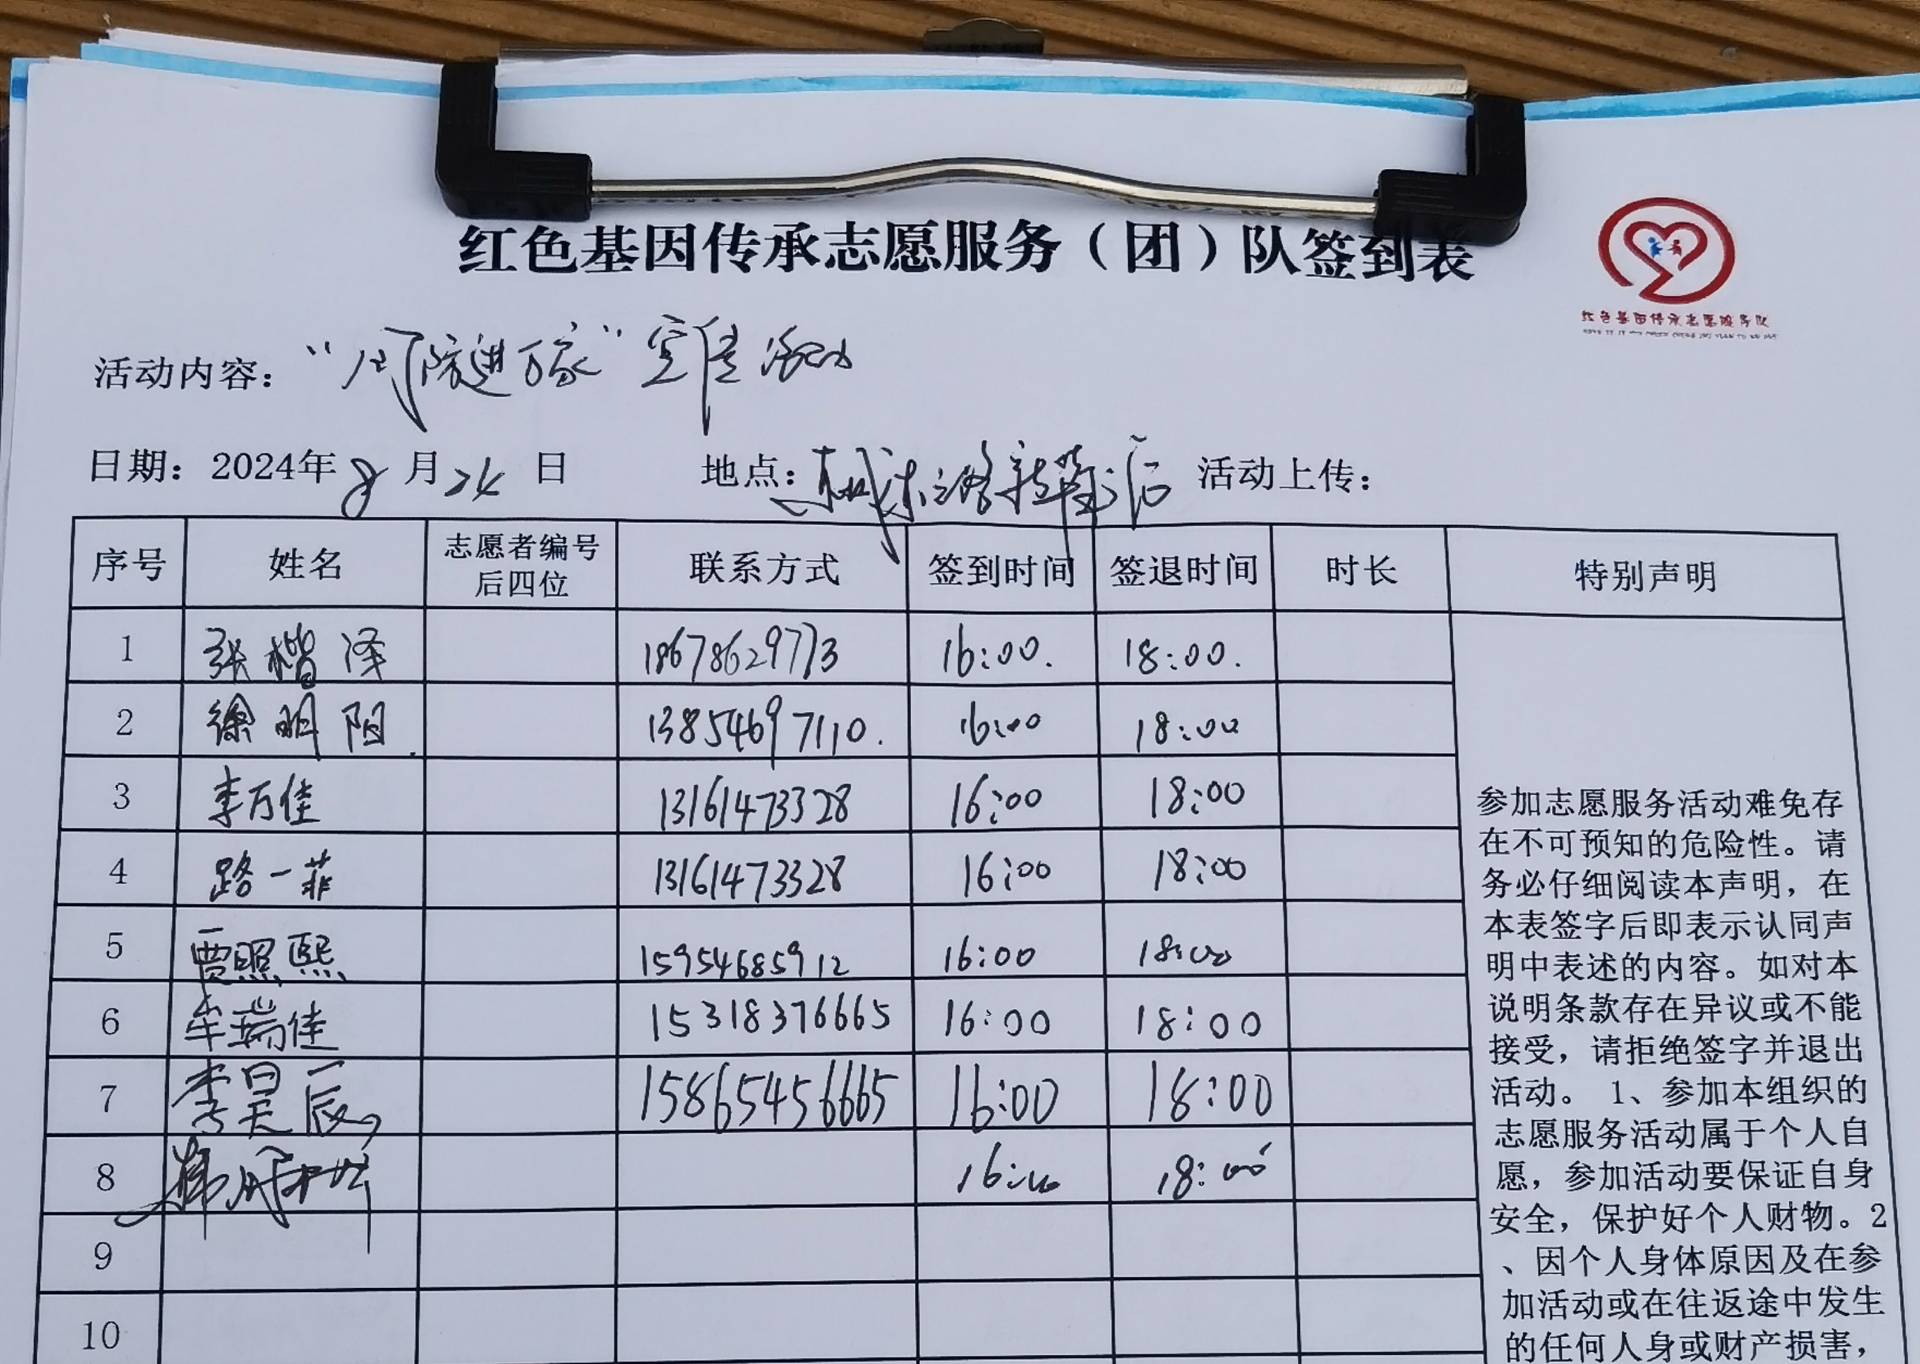 红色基因传承志愿服务（团）队签到表
红色基因传承志愿服务队
活动内容： 进万家”宣传活动
日期：2024年8月24日 地点： 活动上传：
序号 姓名 志愿者编号后四位 联系方式 签到时间 签退时间 时长 特别声明
1 张楷泽 18678629773 16:00. 18:00.
2 徐明阳. 13854697110. 16:00 18:00
3 李万佳 13161473328 16:00 18:00
4 路一菲 13161473328 16:00 18:00
5 贾照熙 15954685912 16:00 18:00
6 牟瑞佳 15318376665 16:00 18:00
7 李昊辰 15865456665 16:00 18:00
8 16:00 18:00
9
10
参加志愿服务活动难免存
在不可预知的危险性。请
务必仔细阅读本声明，在
本表签字后即表示认同声
明中表述的内容。如对本
说明条款存在异议或不能
接受，请拒绝签字并退出
活动。 1、参加本组织的
志愿服务活动属于个人自
愿，参加活动要保证自身
安全，保护好个人财物。2
、因个人身体原因及在参
加活动或在往返途中发生
的任何人身或财产损害，